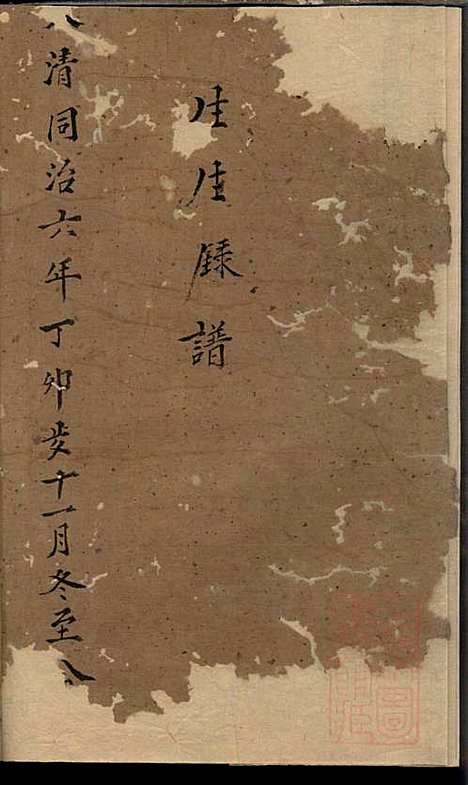 生生録譜
清同治六年丁卯歲十一月冬至